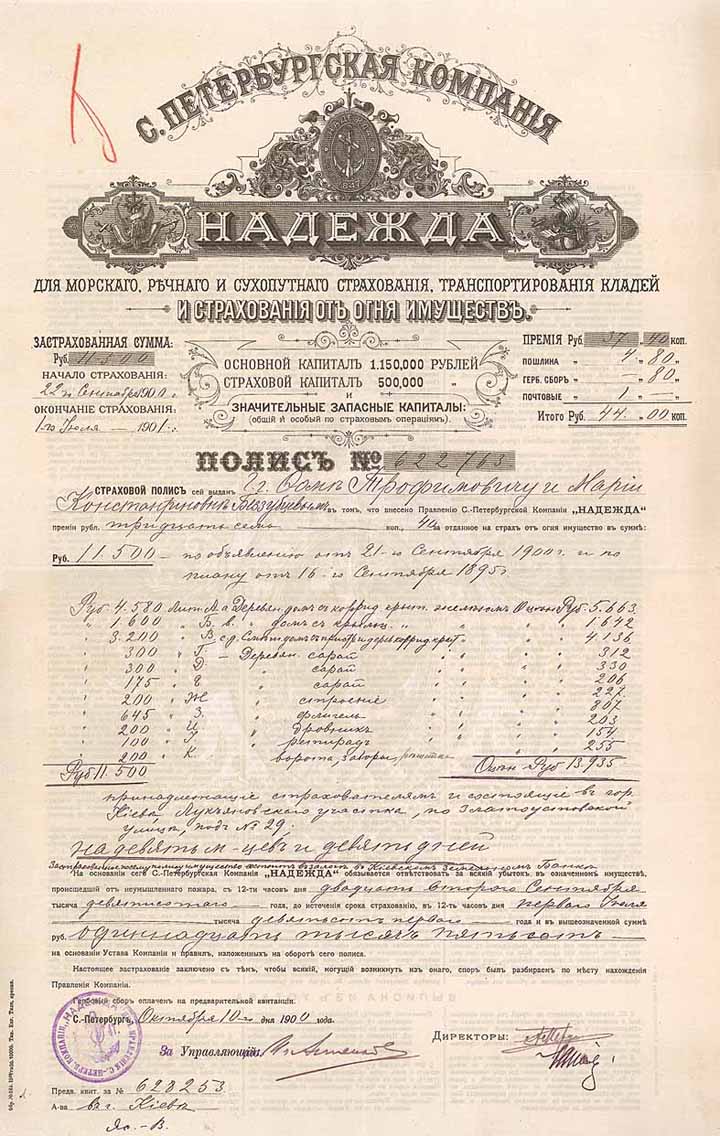 С. ПЕТЕРБУРГСКАЯ КОМПАНІЯ
1847
НАДЕЖДА
ДЛЯ МОРСКАГО, РѢЧНАГО И СУХОПУТНАГО СТРАХОВАНІЯ, ТРАНСПОРТИРОВАНІЯ КЛАДЕЙ
И СТРАХОВАНІЯ ОТЪ ОГНЯ ИМУЩЕСТВЪ.
ЗАСТРАХОВАННАЯ СУММА:
Руб. 11500
НАЧАЛО СТРАХОВАНІЯ:
22го Сентября 1900 г.
ОКОНЧАНІЕ СТРАХОВАНІЯ:
1-го Іюля — 1901 г.
ОСНОВНОЙ КАПИТАЛЪ 1.150,000 РУБЛЕЙ
СТРАХОВОЙ КАПИТАЛЪ 500,000 „
И
ЗНАЧИТЕЛЬНЫЕ ЗАПАСНЫЕ КАПИТАЛЫ:
(общій и особый по страховымъ операціямъ).
ПРЕМІЯ Руб. 37 „ 40 коп.
ПОШЛИНА „ 4 „ 80 „
ГЕРБ. СБОРЪ „ — „ 80 „
ПОЧТОВЫЕ „ 1 „ — „
Итого Руб. 44 „ 00 коп.
ПОЛИСЪ № 622763
СТРАХОВОЙ ПОЛИСЪ сей выданъ Г.г. Ѳомѣ Трофимовичу и Маріи
Константиновнѣ Беззубцевымъ въ томъ, что внесено Правленію С.-Петербургской Компаніи „НАДЕЖДА"
преміи рубл. тридцать семь коп., 40 за отданное на страхъ отъ огня имущество въ суммѣ:
Руб. 11.500 — по объявленію отъ 21-го Сентября 1900 г. и по
плану отъ 16-го Сентября 1895 г.
Руб. 4.580 Лит. А. а Деревян. домъ съ коррид. крыт. желѣзомъ Оцѣн. Руб. 5.663
„ 1.600 „ Б. в. „ домъ съ крыльц. „ „ 1.642
„ 3.200 „ В „ 4136
„ 300 „ Г — Деревян. сарай „ „ 312
„ 300 „ Д. „ сарай „ „ 330
„ 175 „ Е „ сарай „ „ 206
„ 200 „ Ж „ строеніе „ „ 227
„ 645 „ З. „ флигель „ „ 807
„ 200 „ И „ дровяникъ „ „ 203
„ 100 „ І „ ретирадъ „ „ 154
„ 200 „ К. „ ворота, заборы „ 255
Руб 11.500 Оцѣн Руб 13.935
принадлежащіе страхователямъ и состоящіе въ гор.
Кіевѣ, Лукьяновскаго участка, по Златоустовской
улицѣ, подъ № 29.
на девять м-цевъ и девять дней
въ Кіевскомъ Земельномъ Банкѣ
На основаніи сего С.-Петербургская Компанія „НАДЕЖДА" обязывается отвѣтствовать за всякій убытокъ, въ означенномъ имуществѣ,
происшедшій отъ неумышленнаго пожара, съ 12-ти часовъ дня двадцать второго Сентября
тысяча девятисотаго — года, до истеченія срока страхованію, въ 12-ть часовъ дня перваго Іюля
тысяча девятьсотъ перваго — года и въ вышеозначенной суммѣ
руб. одиннадцать тысячъ пятьсотъ —
на основаніи Устава Компаніи и правилъ, изложенныхъ на оборотѣ сего полиса.
Настоящее застрахованіе заключено съ тѣмъ, чтобы всякій, могущій возникнуть изъ онаго, споръ былъ разбираемъ по мѣсту нахожденія
Правленія Компаніи.
Гербовый сборъ оплаченъ на предварительной квитанціи.
С.-Петербургъ, Октября 10-го дня 1900 года.
ДИРЕКТОРЫ:
За Управляющій
Предв. квит. за № 628253
А-ва въ г. Кіевѣ
Яс.-В.